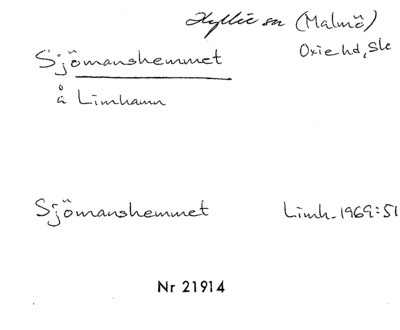 Hyllie sn (Malmö)
Oxie hd, Sk
Sjömanshemmet
å Limhamn
Sjömanshemmet Limh. 1969:51
Nr 21914